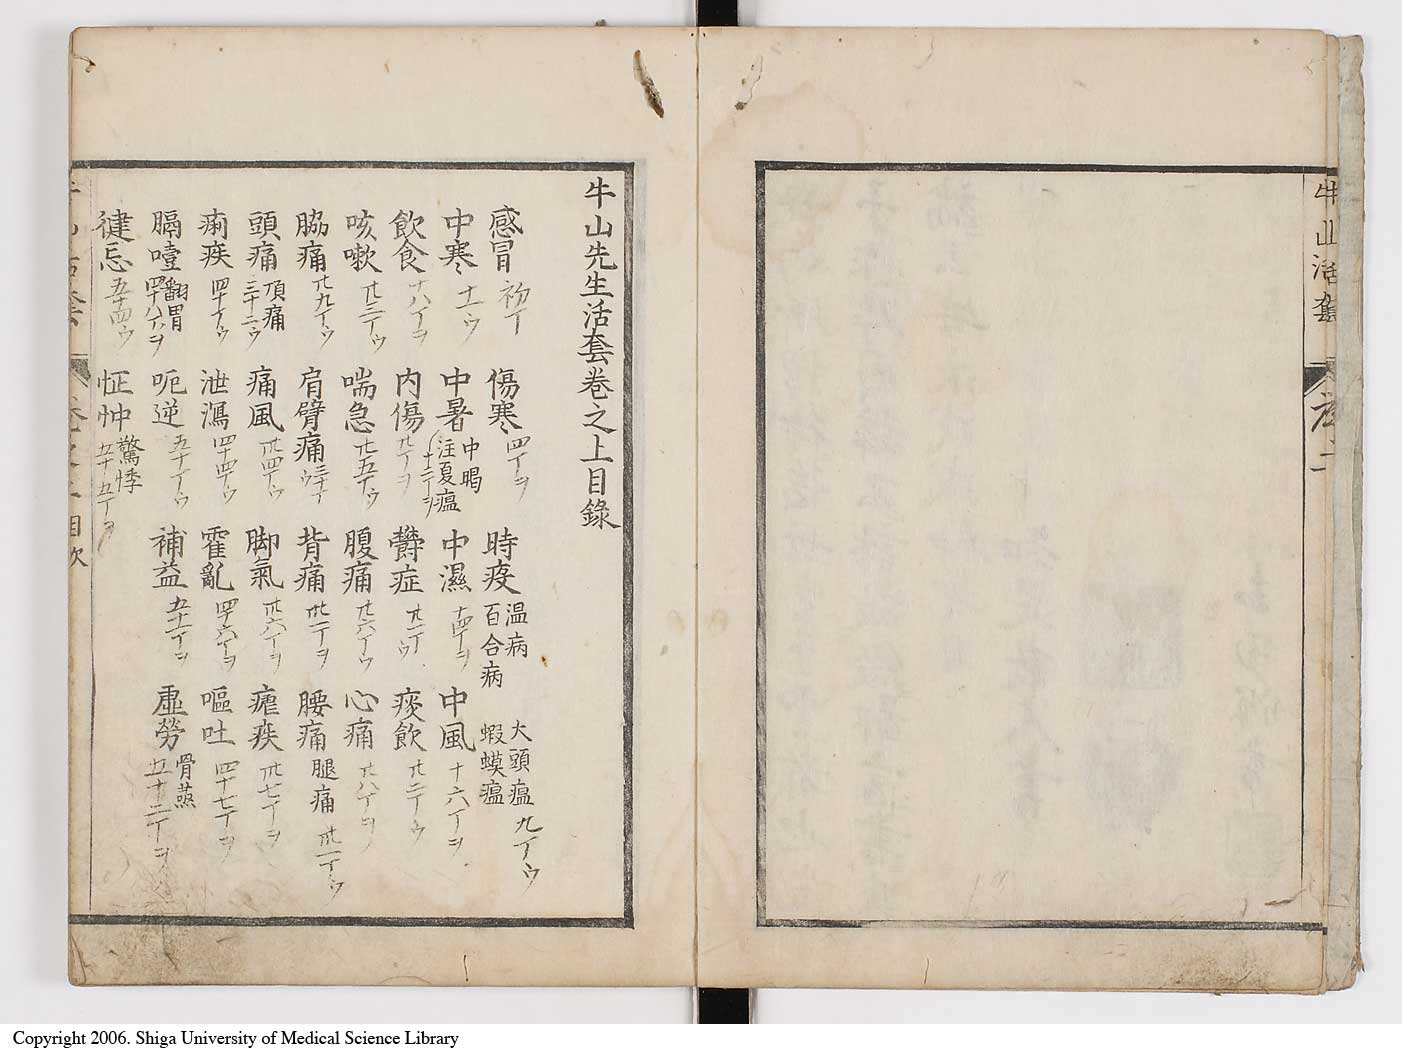 牛山活套
序
二
牛山先生活套卷之上目錄
感冒 初丁 傷寒 四丁ヲ 時疫 温病 百合病 大頭瘟 蝦蟆瘟 九丁ウ
中寒 十一ウ 中暑 中暍 注夏瘟 十二丁ヲ 中濕 十四丁ヲ 中風 十六丁ヲ
飲食 十八丁ヲ 内傷 欝症 痰飲 廿二丁ウ
咳嗽 廿三丁ウ 喘急 廿五丁ウ 腹痛 廿六丁ウ 心痛 廿八丁ヲ
脇痛 廿九丁ウ 肩臂痛 三十丁ウ 背痛 卅一丁ヲ 腰痛 腿痛 卅一丁ウ
頭痛 頂痛 三十二ウ 痛風 卅四丁ウ 脚氣 卅六丁ヲ 瘧疾 卅七丁ヲ
痢疾 四十丁ウ 泄瀉 四十四丁ウ 霍亂 四十六丁ヲ 嘔吐 四十七丁ヲ
膈噎 翻胃 四十八丁ヲ 呃逆 五十丁ウ 補益 五十一丁ヲ 虛勞 骨蒸 五十二丁ヲ
健忘 五十四ウ 怔忡 驚悸 五十五丁ヲ
目次
Copyright 2006. Shiga University of Medical Science Library